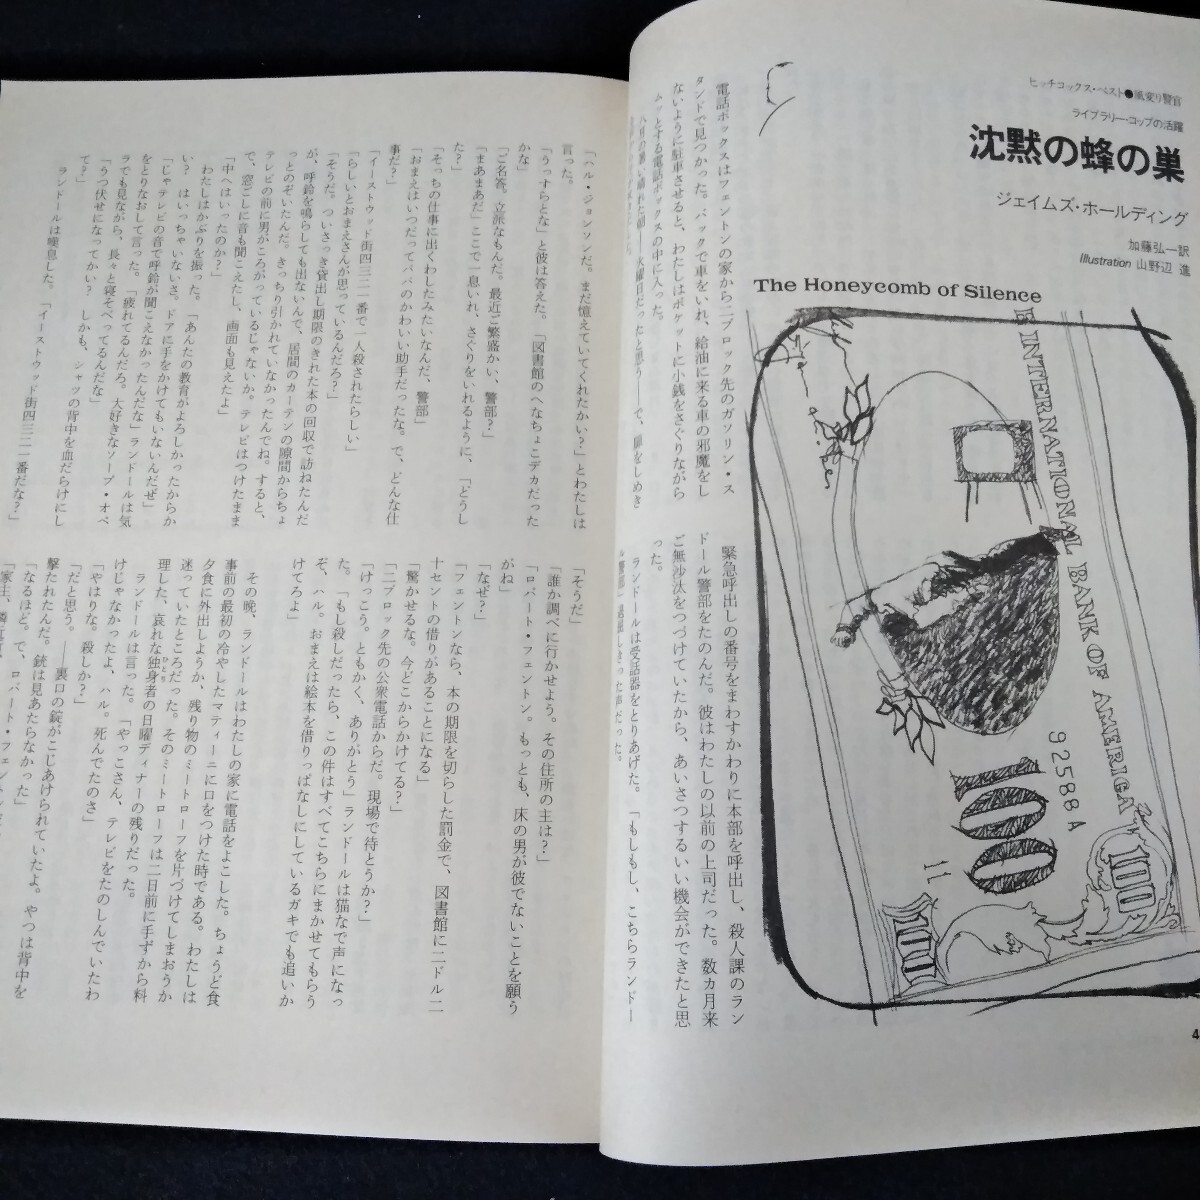 ヒッチコックス・ベスト●風変り警官
ライブラリー・コップの活躍
沈黙の蜂の巣
ジェイムズ・ホールディング
加藤弘一訳
Illustration 山野辺 進
The Honeycomb of Silence
E INTERNATIONAL BANK OF AMERIGA
92588A
100
11
100
100
電話ボックスはフェントンの家から二ブロック先のガソリン・ス
タンドで見つかった。バックで車をいれ、給油に来る車の邪魔をし
ないように駐車させると、わたしはポケットに小銭をさぐりながら
ムッとする電話ボックスの中に入った。
八月の暑い晴れた朝――火曜日だったと思う――で、扉をしめき
緊急呼出しの番号をまわすかわりに本部を呼出し、殺人課のラン
ドール警部をたのんだ。彼はわたしの以前の上司だった。数カ月来
ご無沙汰をつづけていたから、あいさつするいい機会ができたと思
った。
ランドールは受話器をとりあげた。「もしもし、こちらランドー
ル警部」退屈しきった声だった。
「ハル・ジョンソンだ。まだ憶えていてくれたかい？」とわたしは
言った。
「うっすらとな」と彼は答えた。「図書館のへなちょこデカだった
かな」
「ご名答。立派なもんだ。最近ご繁盛かい、警部？」
「まあまあだ」ここで一息いれ、さぐりをいれるように、「どうし
た？」
「そっちの仕事に出くわしたみたいなんだ、警部」
「おまえはいつだってパパのかわいい助手だったな。で、どんな仕
事だ？」
「イーストウッド街四三二一番で一人殺されたらしい」
「らしいとおまえさんが思っているんだろ？」
「そうだ。ついさっき貸出し期限のきれた本の回収で訪ねたんだ
が、呼鈴を鳴らしても出ないんで、居間のカーテンの隙間からちょ
っとのぞいたんだ。きっちり引かれていなかったんでね。すると、
テレビの前に男がころがっているじゃないか。テレビはつけたまま
で、窓ごしに音も聞こえたし、画面も見えたよ」
「中へはいったのか？」
わたしはかぶりを振った。「あんたの教育がよろしかったからか
い？ はいっちゃいないさ。ドアに手をかけてもいないんだぜ」
「じゃテレビの音で呼鈴が聞こえなかったんだな」ランドールは気
をとりなおして言った。「疲れてるんだろ。大好きなソープ・オペ
ラでも見ながら、長々と寝そべってるんだな」
「うつ伏せになってかい？ しかも、シャツの背中を血だらけにし
て？」
ランドールは嘆息した。「イーストウッド街四三二一番だな？」
「そうだ」
「誰か調べに行かせよう。その住所の主は？」
「ロバート・フェントン。もっとも、床の男が彼でないことを願う
がね」
「なぜ？」
「フェントンなら、本の期限を切らした罰金で、図書館に二ドル二
十セントの借りがあることになる」
「驚かせるな。今どこからかけてる？」
「二ブロック先の公衆電話からだ。現場で待とうか？」
「けっこう。ともかく、ありがとう」ランドールは猫なで声になっ
た。「もし殺しだったら、この件はすべてこちらにまかせてもらう
ぞ、ハル。おまえは絵本を借りっぱなしにしているガキでも追いか
けてろよ」
その晩、ランドールはわたしの家に電話をよこした。ちょうど食
事前の最初の冷やしたマティーニに口をつけた時である。わたしは
夕食に外出しようか、残り物のミートローフを片づけてしまおうか
迷っていたところだった。そのミートローフは二日前に手ずから料
理した、哀れな独身者ひとりの日曜ディナーの残りだった。
ランドールは言った。「やっこさん、テレビをたのしんでいたわ
けじゃなかったよ、ハル。死んでたのさ」
「やはりな。殺しか？」
「だと思う。――裏口の錠がこじあけられていたよ。やつは背中を
撃たれたんだ。銃は見あたらなかった」
「なるほど。で、ロバート・フェン
「家主、隣